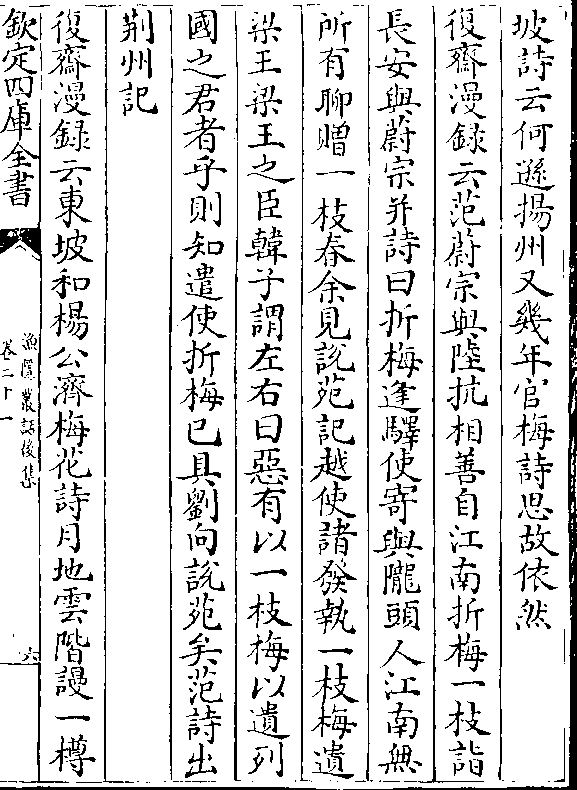 坡詩云何遜揚州又幾年官梅詩思故依然
復齋漫録云范蔚宗與陸抗相善自江南折梅一枝詣
長安與蔚宗并詩曰折梅逢驛使寄與隴頭人江南無
所有聊贈一枝春余見說苑記越使諸發執一枝梅遺
梁王梁王之臣韓子謂左右曰惡有以一枝梅以遺列
國之君者乎則知遣使折梅已具劉向說苑矣范詩出
荆州記
復齋漫録云東坡和楊公濟梅花詩月地雲階謾一樽
欽定四庫全書
漁隱叢話後集
卷二十一
六